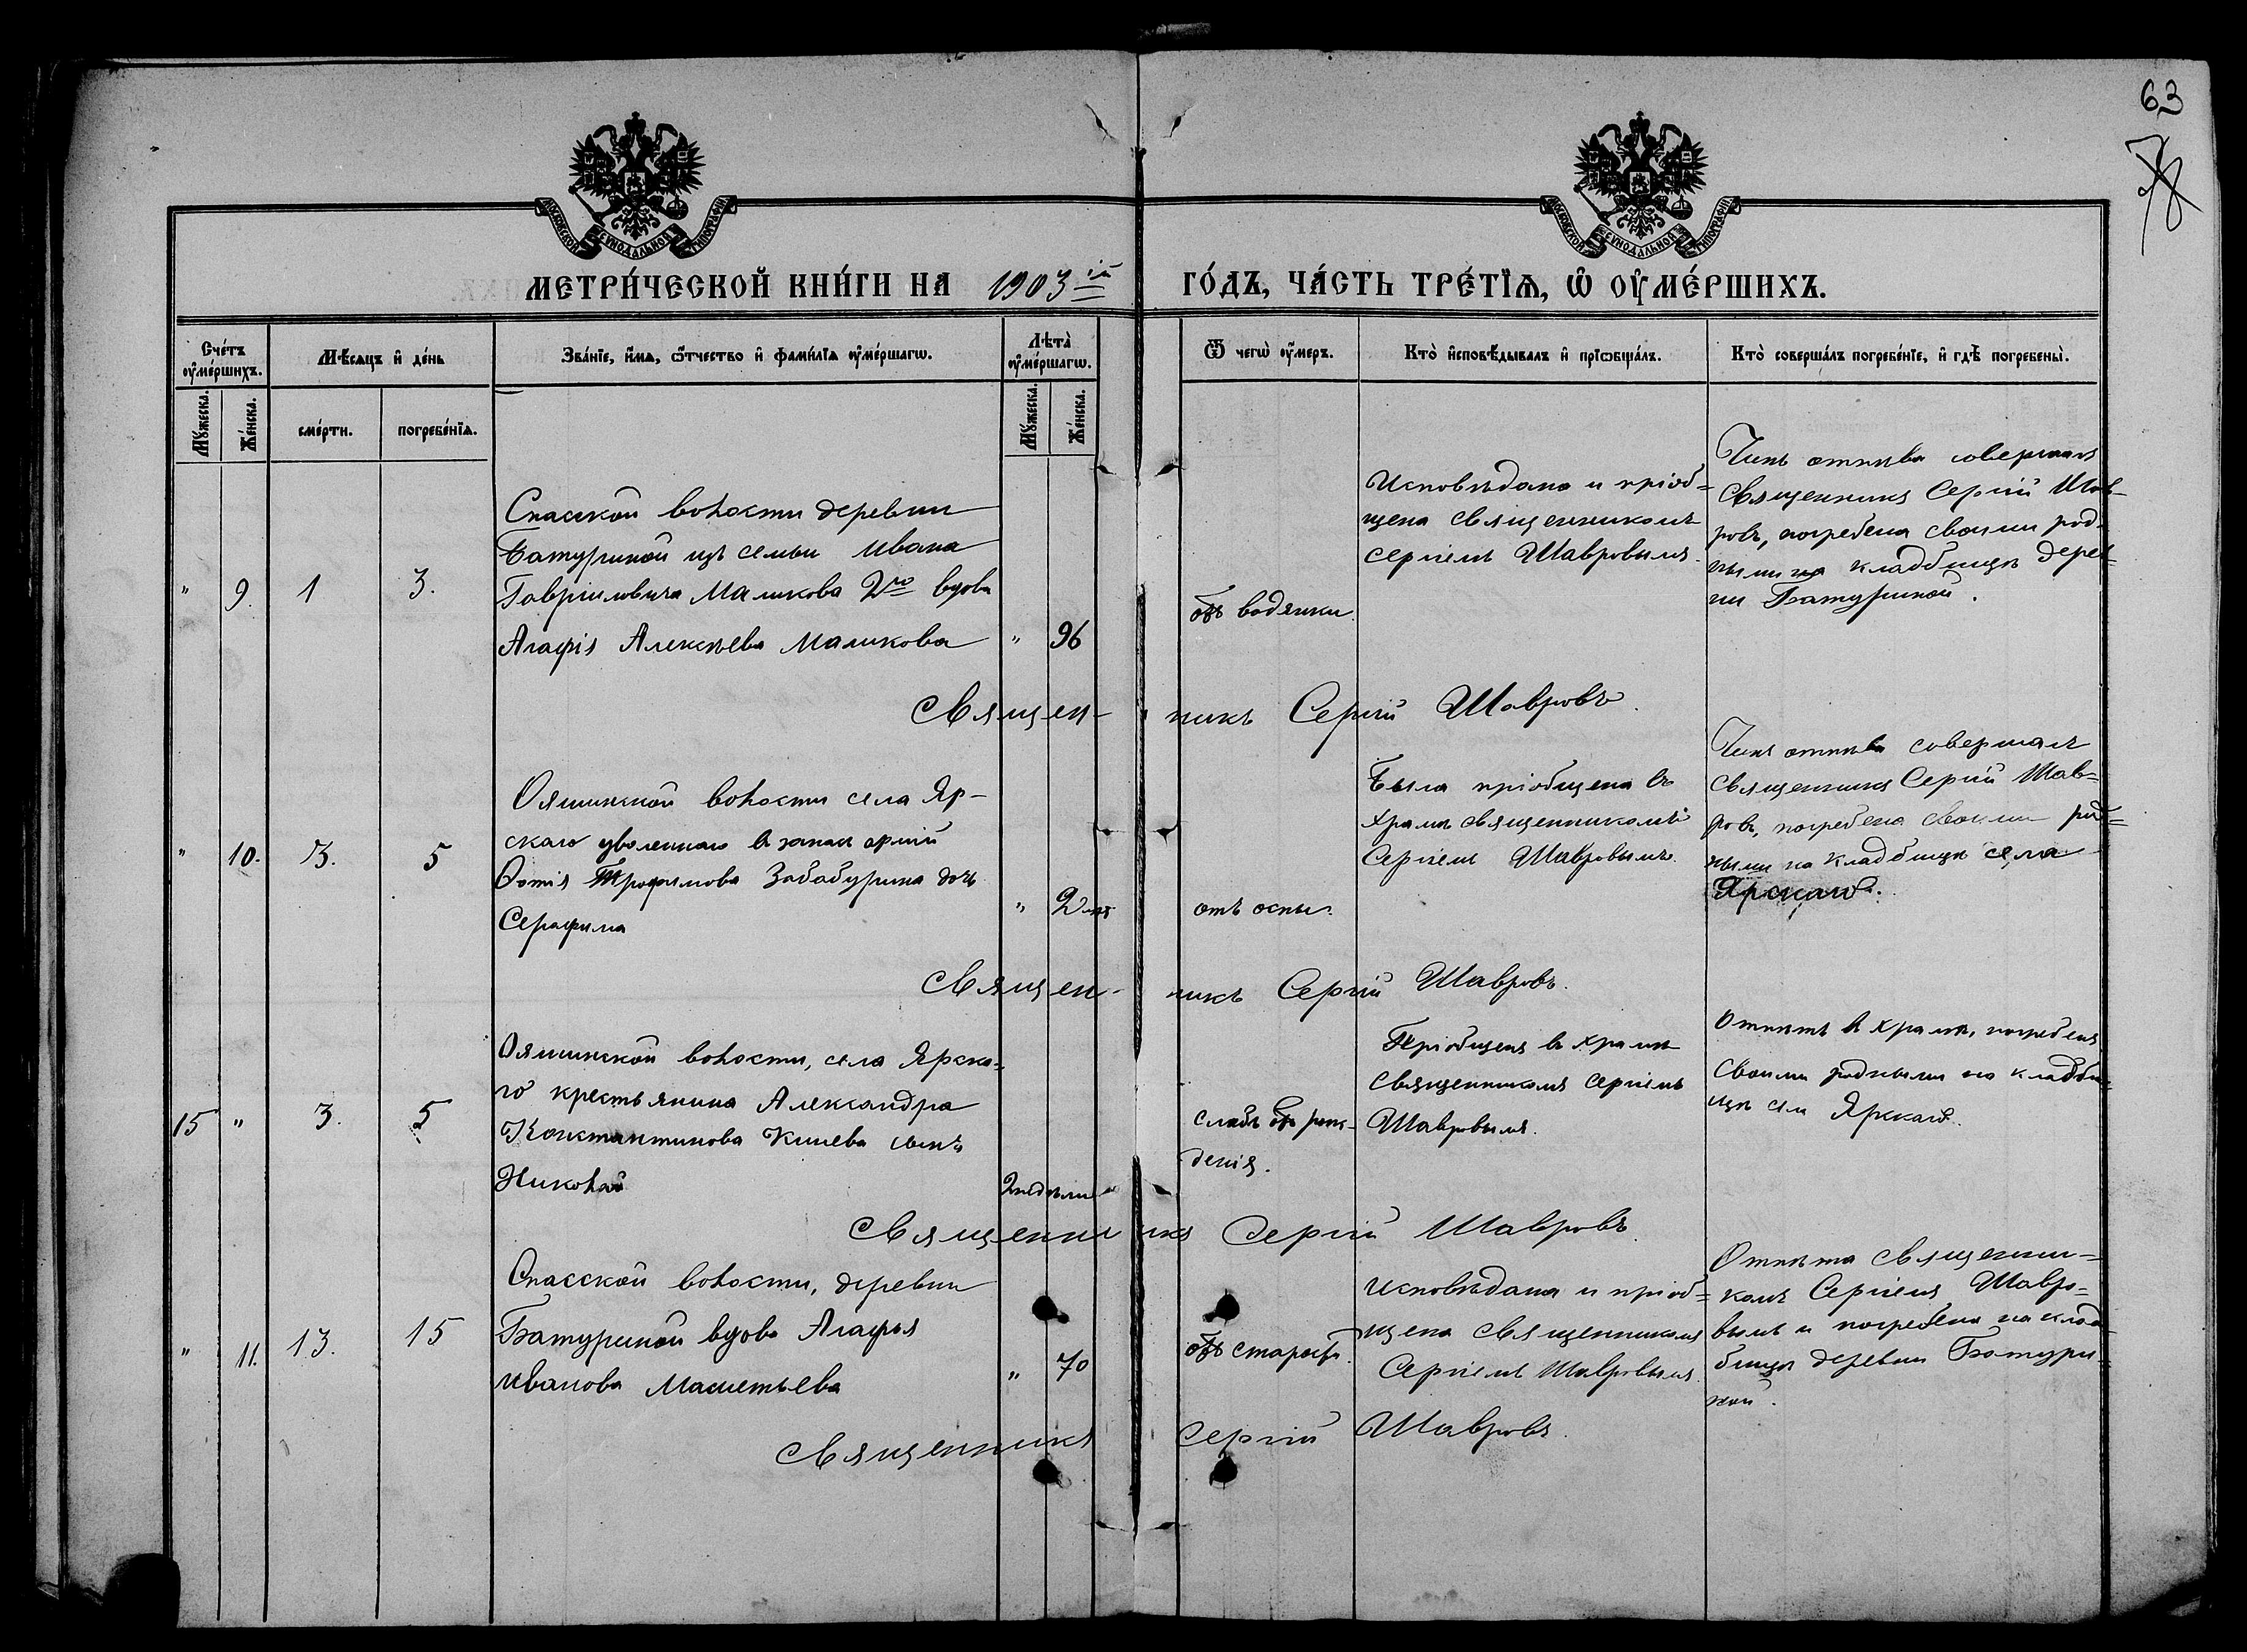 63
МОСКОВСКОЙ СУНОДАЛЬНОЙ ТИПОГРАФІИ
МОСКОВСКОЙ СУНОДАЛЬНОЙ ТИПОГРАФІИ
МЕТРИ́ЧЕСКОЙ КНИ́ГИ НА 1903 й ГО́ДЪ, ЧА́СТЬ ТРЕ́ТІѦ, Ѡ ОУ҆МЕ́РШИХЪ.
Сче́тъ оу҆ме́ршихъ.
Мꙋ́жеска.
Же́нска.
Мѣ́сѧцъ и҆ де́нь
сме́рти.
погребе́нїѧ.
Зва́нїе, и҆́мѧ, ѻ҆́тчество и҆ фами́лїѧ оу҆ме́ршагѡ.
Лѣта̀ оу҆ме́ршагѡ.
Мꙋ́жеска.
Же́нска.
Ѿ чегѡ̀ оу҆́меръ.
Кто̀ и҆сповѣ́дывалъ и҆ прїѡбща́лъ.
Кто̀ соверша́лъ погребе́нїе, и҆ гдѣ̀ погребены̀.
" 9. 1 3.
Спасской волости деревни
Батуриной изъ семьи Ивана
Гавриловича Маликова 2го вдова
Агафія Алексѣева Маликова " 96
отъ водянки.
Исповѣдана и пріоб=
щена священникомъ
Сергіемъ Шавровымъ.
Чинъ отпѣва совершалъ
Священникъ Сергій Шав-
ровъ, погребена своими род-
ными на кладбищѣ дерев=
ни Батуриной.
Священ-никъ Сергій Шавровъ.
" 10. 3. 5
Ояшинской волости села Яр-
скаго уволеннаго в запас армій
Фотія Трофимова Забабурина дочь
Серафима " 2 лѣтъ
отъ оспы.
Была пріобщена въ
храмѣ священникомъ
Сергіемъ Шавровымъ.
Чинъ отпѣва совершалъ
Священникъ Сергій Шав=
ровъ, погребена своими род=
ными на кладбищѣ села
Ярскаго.
Священ-никъ Сергій Шавровъ.
15 " 3. 5
Ояшинской волости, села Ярска-
го крестьянина Александра
Константинова сынъ
Николай 2 недѣли
слабъ отъ рож-
денія.
Пріобщенъ въ храмѣ
священникомъ Сергіемъ
Шавровымъ.
Отпѣтъ въ храмѣ, погребенъ
своими родными на кладби-
щѣ села Ярскаго.
Священникъ Сергій Шавровъ.
" 11. 13. 15
Спасской волости, деревни
Батуриной вдова Агафья
Иванова " 70
отъ старости.
Исповѣдана и пріоб=
щена священникомъ
Сергіемъ Шавровымъ.
Отпѣта священни=
комъ Сергіемъ Шавро=
вымъ и погребена на клад
бищѣ деревни Батури=
ной.
Священникъ Сергій Шавровъ.